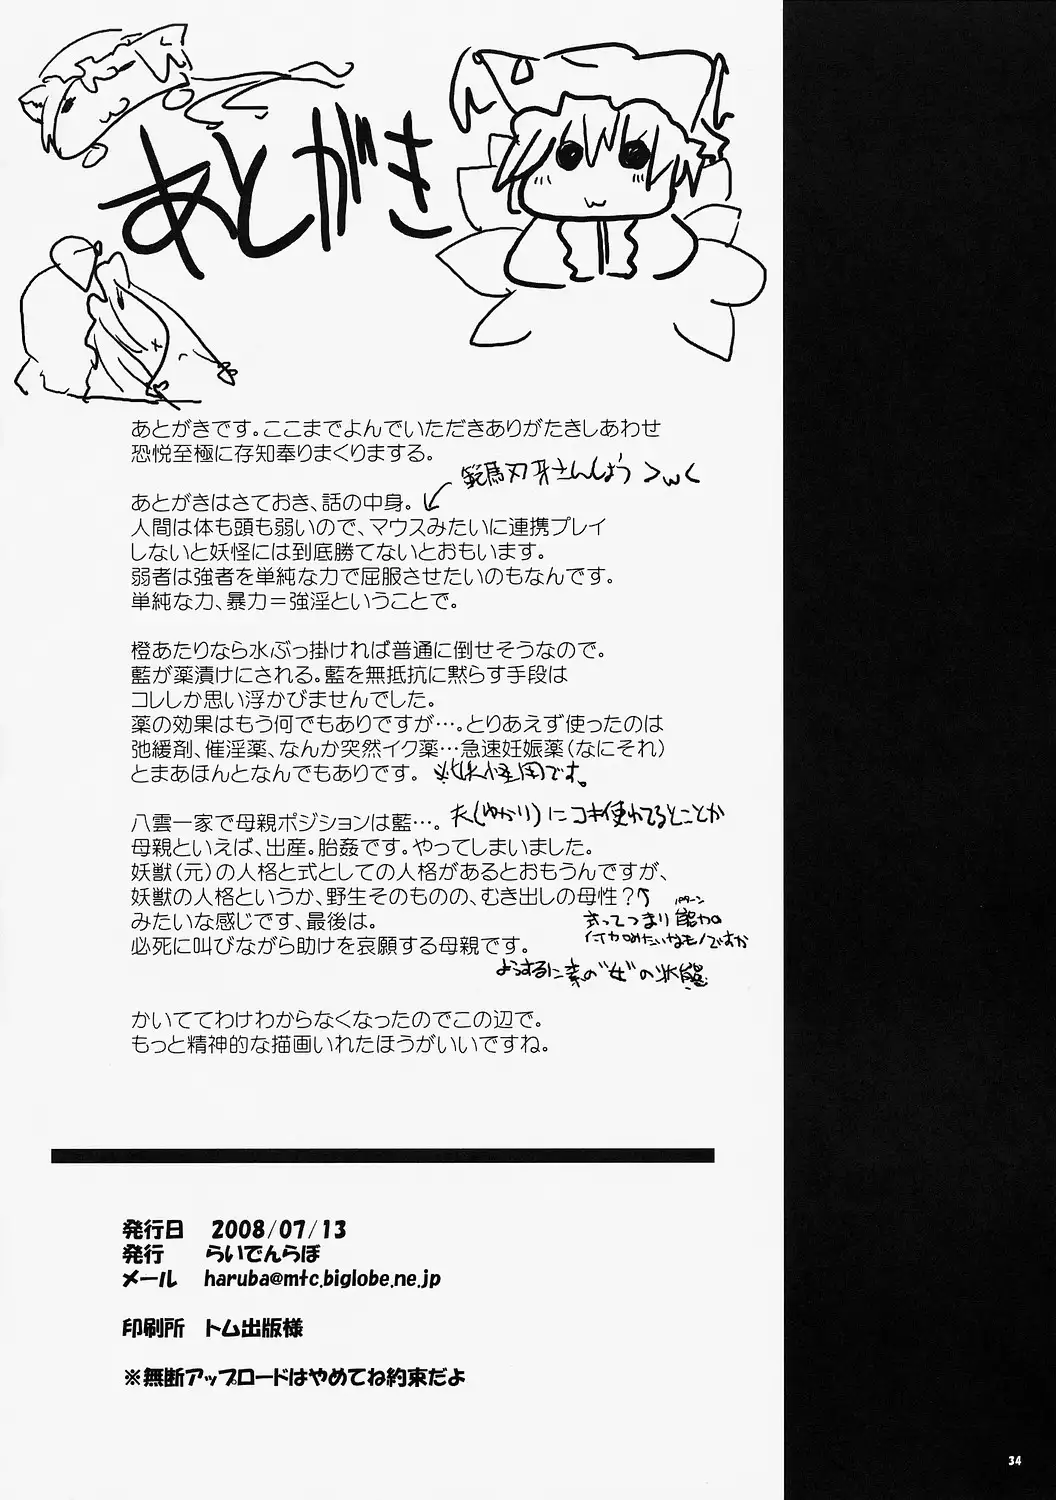 あとがき
あとがきです。ここまでよんでいただきありがたきしあわせ
恐悦至極に存知奉りまくりまする。
範馬刃牙さんしょう >w<
あとがきはさておき、話の中身。
人間は体も頭も弱いので、マウスみたいに連携プレイ
しないと妖怪には到底勝てないとおもいます。
弱者は強者を単純な力で屈服させたいのもなんです。
単純な力、暴力＝強淫ということで。
橙あたりなら水ぶっ掛ければ普通に倒せそうなので。
藍が薬漬けにされる。藍を無抵抗に黙らす手段は
コレしか思い浮かびませんでした。
薬の効果はもう何でもありですが…。とりあえず使ったのは
弛緩剤、催淫薬、なんか突然イク薬…急速妊娠薬（なにそれ）
とまあほんとなんでもありです。 ※妖怪用です。
八雲一家で母親ポジションは藍…。 夫(ゆかり)にコキ使われてるとことか
母親といえば、出産。胎姦です。やってしまいました。
妖獣（元）の人格と式としての人格があるとおもうんですが、
妖獣の人格というか、野生そのものの、むき出しの母性？
みたいな感じです、最後は。
式ってつまり能力
付加みたいなモノですか
必死に叫びながら助けを哀願する母親です。
ようするに素の"女"の状態
かいててわけわからなくなったのでこの辺で。
もっと精神的な描画いれたほうがいいですね。
発行日 2008/07/13
発行 らいでんらぼ
メール haruba@mtc.biglobe.ne.jp
印刷所 トム出版様
※無断アップロードはやめてね約束だよ
34